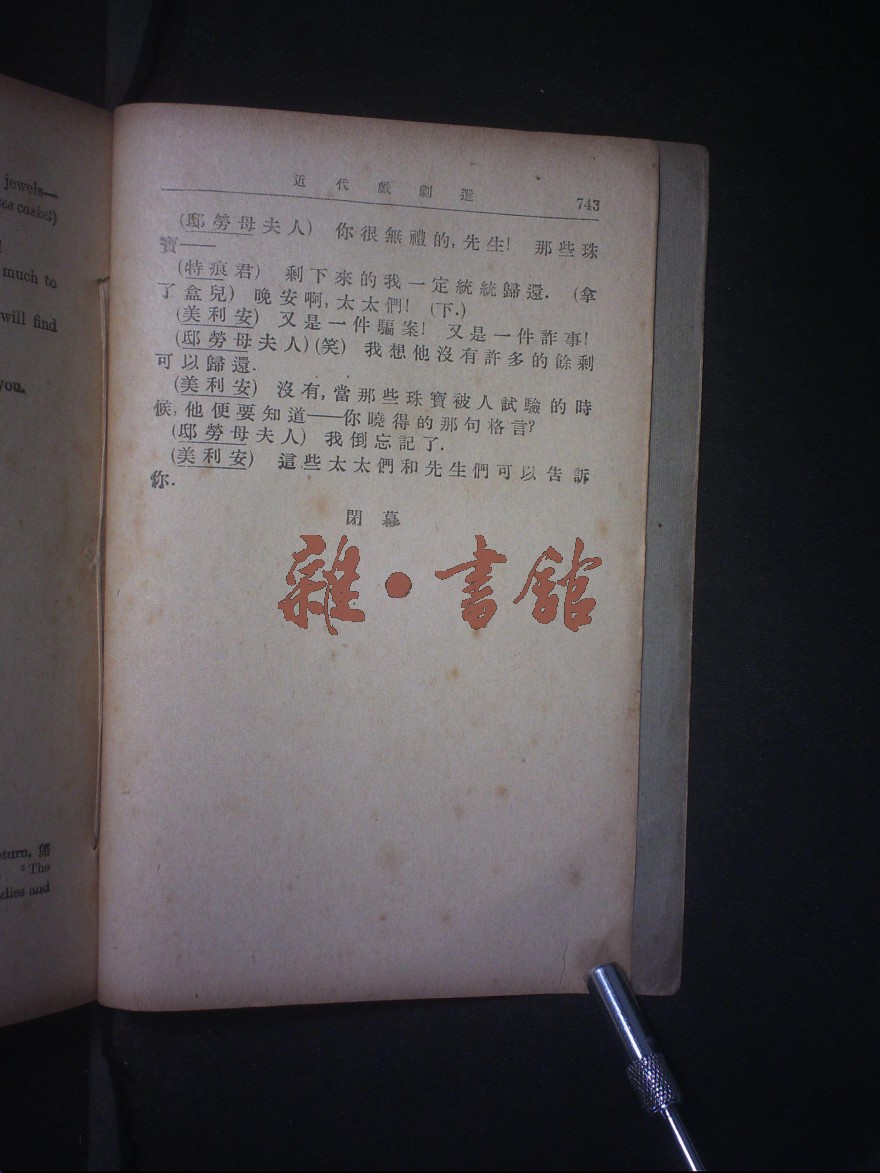 jewels—
es casket)
much to
will find
you.
eturn, 係
The
dies and
近代戲劇選 743
(邸勞母夫人) 你很無禮的,先生! 那些珠
寶——
(特痕君) 剩下來的我一定統統歸還. (拿
了盒兒) 晚安啊,太太們! (下.)
(美利安) 又是一件騙案! 又是一件詐事!
(邸勞母夫人)(笑) 我想他沒有許多的餘剩
可以歸還.
(美利安) 沒有,當那些珠寶被人試驗的時
候,他便要知道——你曉得的那句格言?
(邸勞母夫人) 我倒忘記了.
(美利安) 這些太太們和先生們可以告訴
你.
閉幕
雜·書館